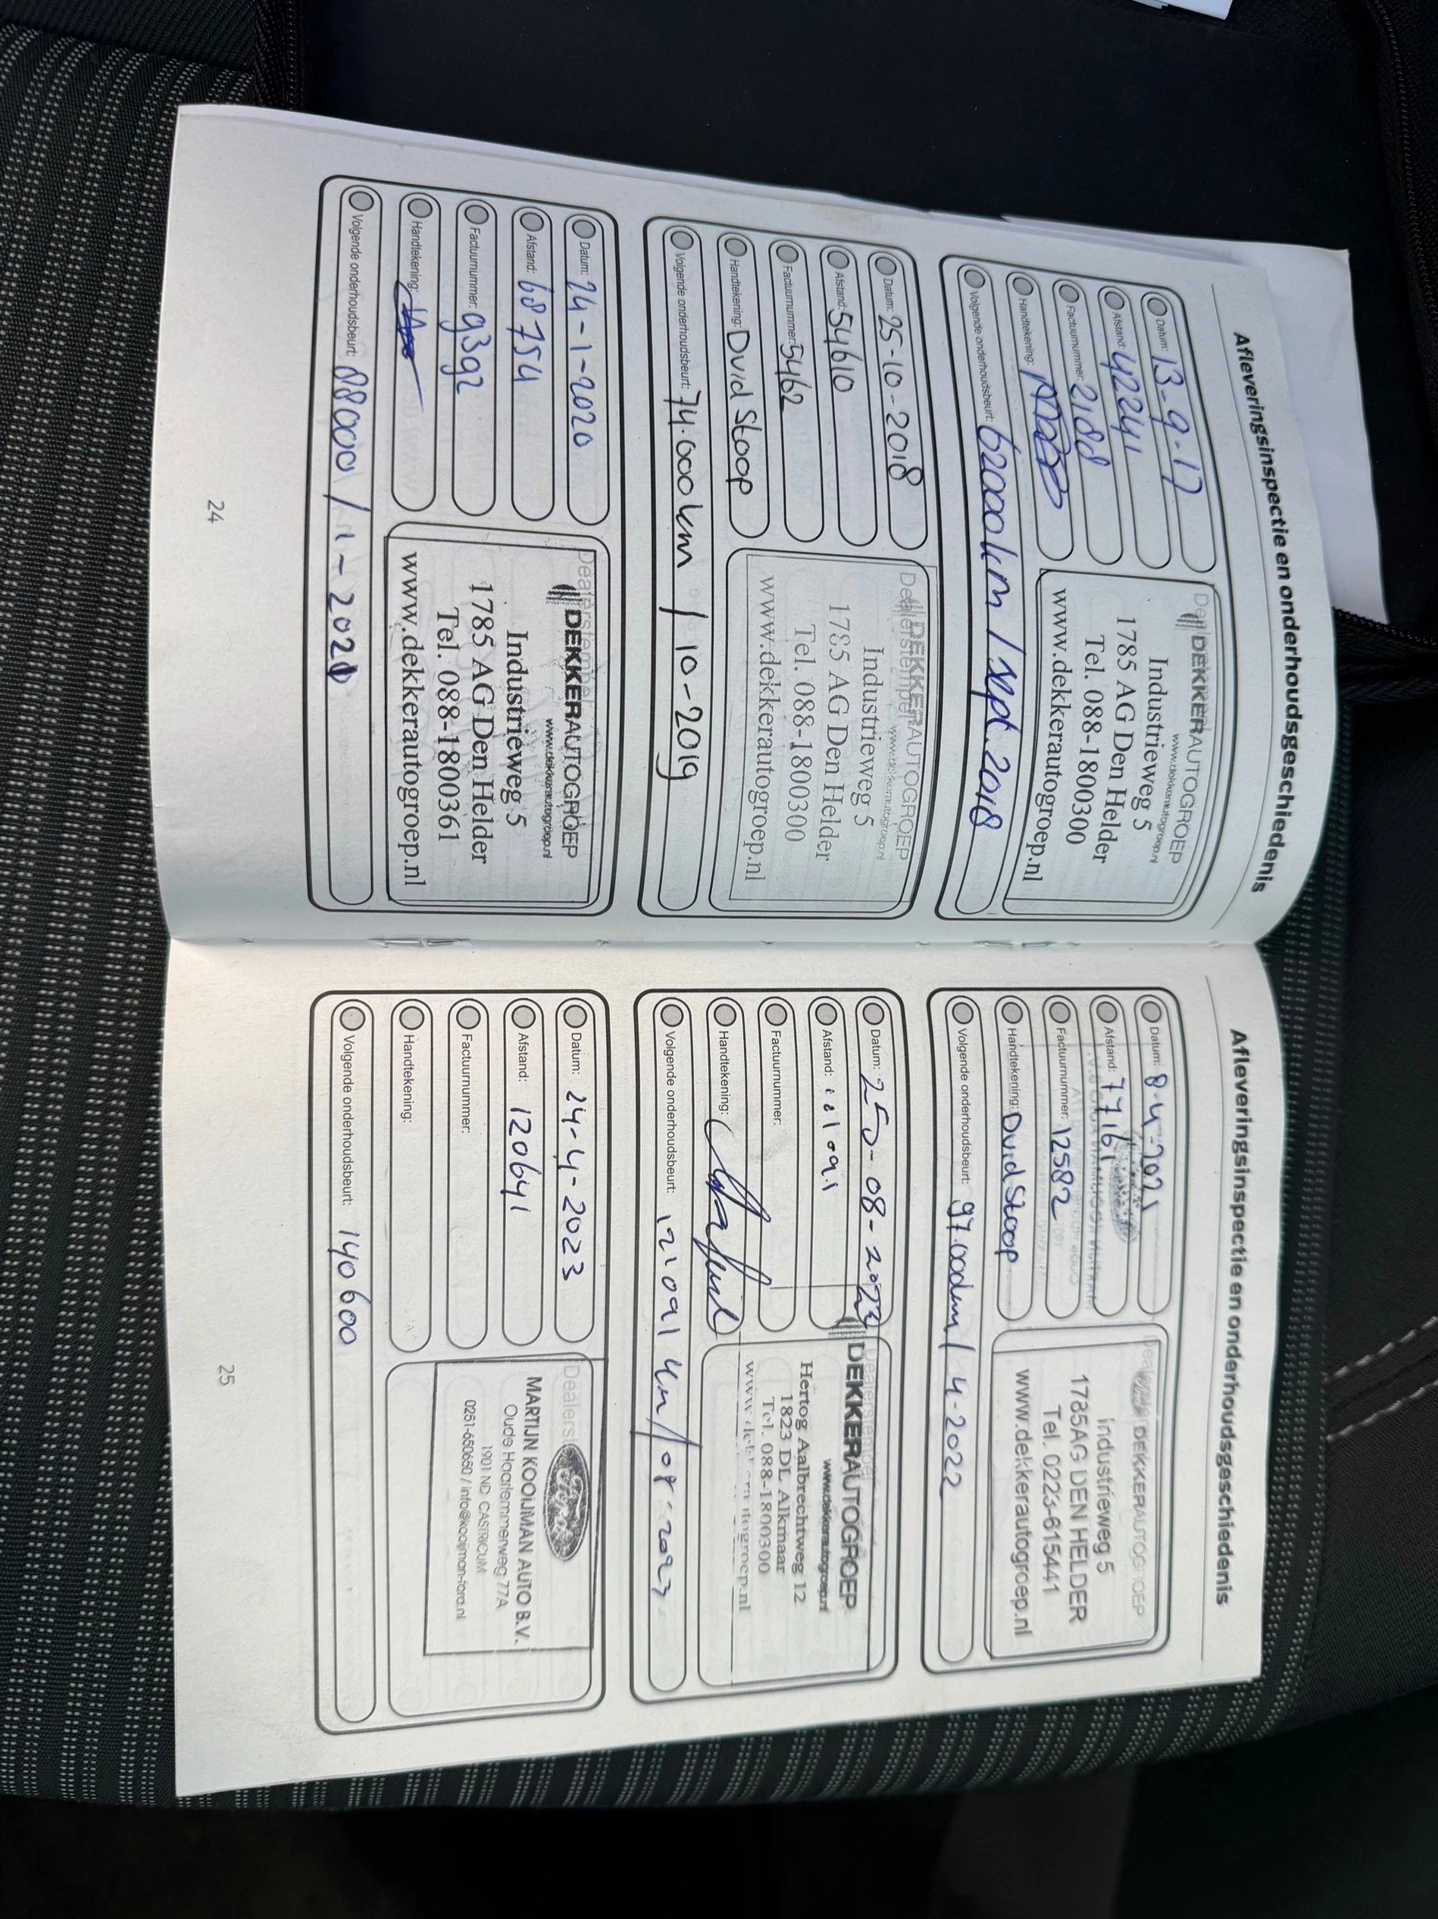 Afleveringsinspectie en onderhoudsgeschiedenis
Datum: 13-9-17
Afstand: 42241
Factuurnummer: 2188
Handtekening:
Volgende onderhoudsbeurt: 62000km / sept. 2018
DEKKERAUTOGROEP
www.dekkerautogroep.nl
Industrieweg 5
1785 AG Den Helder
Tel. 088-1800300
www.dekkerautogroep.nl
Datum: 25-10-2018
Afstand: 54610
Factuurnummer: 5462
Handtekening: Dvid Stoop
Volgende onderhoudsbeurt: 74.000km / 10-2019
Dealerstempel
DEKKERAUTOGROEP
www.dekkerautogroep.nl
Industrieweg 5
1785 AG Den Helder
Tel. 088-1800300
www.dekkerautogroep.nl
Datum: 24-1-2020
Afstand: 68754
Factuurnummer: 9392
Handtekening:
Volgende onderhoudsbeurt: 88000 / 1-2021
Dealerstempel
DEKKERAUTOGROEP
www.dekkerautogroep.nl
Industrieweg 5
1785 AG Den Helder
Tel. 088-1800361
www.dekkerautogroep.nl
24
Afleveringsinspectie en onderhoudsgeschiedenis
Datum: 8-4-2021
Afstand: 77161
Factuurnummer: 12582
Handtekening: Dvid Stoop
Volgende onderhoudsbeurt: 97.000km / 4-2022
DEKKERAUTOGROEP
Industrieweg 5
1785AG DEN HELDER
Tel. 0223-615441
www.dekkerautogroep.nl
Datum: 25-08-2022
Afstand: 101091
Factuurnummer:
Handtekening:
Volgende onderhoudsbeurt: 121091 km / 08-2023
Dealerstempel
DEKKERAUTOGROEP
www.dekkerautogroep.nl
Hertog Aalbrechtweg 12
1823 DL Alkmaar
Tel. 088-1800300
www.dekkerautogroep.nl
Datum: 24-4-2023
Afstand: 120641
Factuurnummer:
Handtekening:
Volgende onderhoudsbeurt: 140600
Ford
MARTIJN KOOIJMAN AUTO B.V.
Oude Haarlemmerweg 77A
1901 ND CASTRICUM
0251-650650 / info@kooijman-ford.nl
25